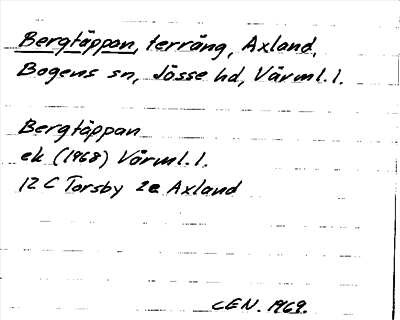 Bergtäppan, terräng, Axland,
Bogens sn, Jösse hd, Värml. l.
Bergtäppan
ek (1968) Värml. l.
12 C Torsby 2e Axland
CEN. 1969.